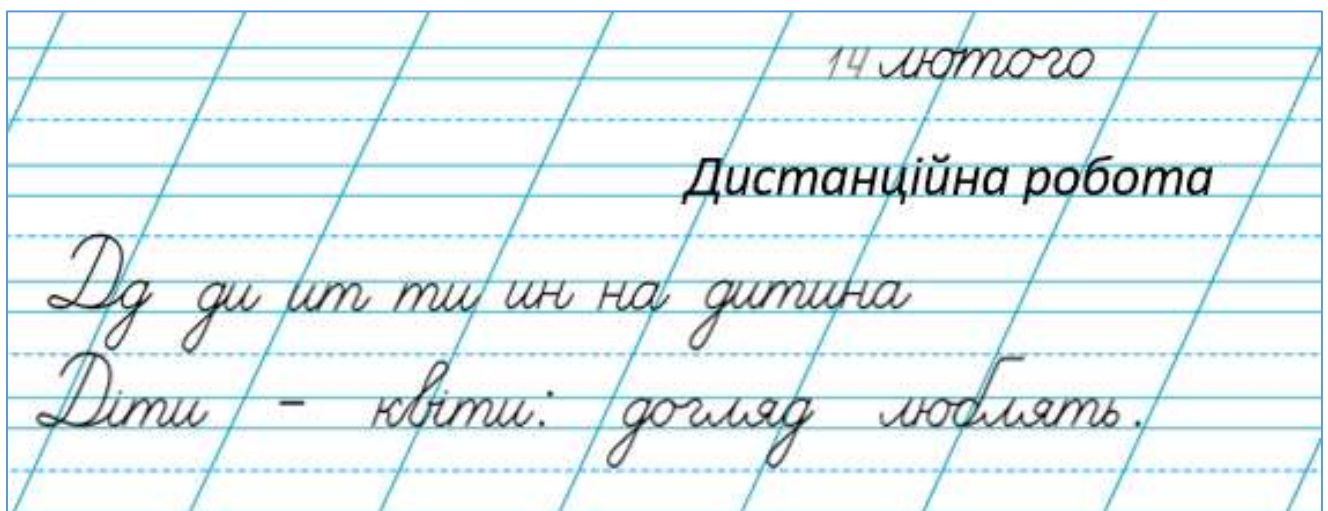 14 лютого
Дистанційна робота
Дд ди ит ти ин на дитина
Діти - квіти: догляд люблять.